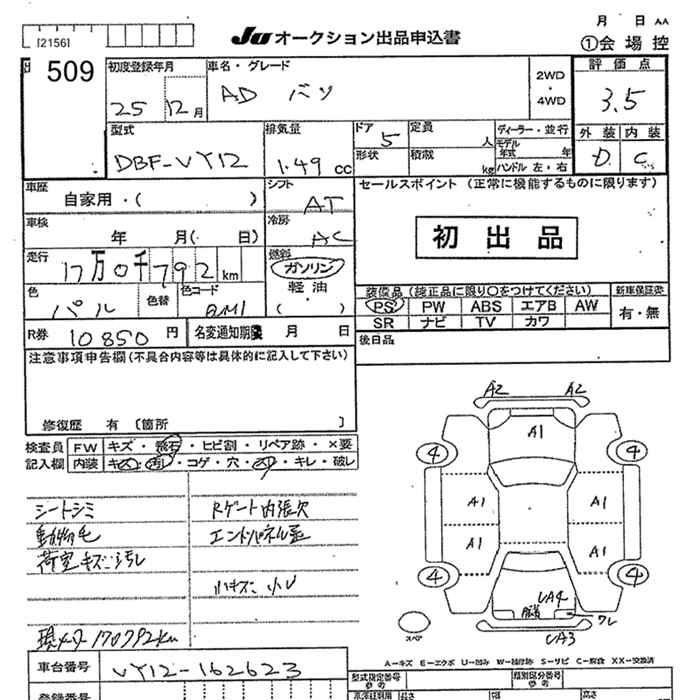 月 日 AA
JU オークション出品申込書
[2156]
①会場控
509
初度登録年月
25 12月
車名・グレード
AD バン
2WD
・
4WD
評価点
3.5
外装 内装
D C
型式
DBF-VY12
排気量
1.49 cc
ドア
5
定員
人
形状
積載
kg
ディーラー・並行
モデル年式 年
ハンドル 左・右
車歴
自家用・( )
シフト
AT
セールスポイント (正常に機能するものに限ります)
初出品
車検
年 月( 日)
冷房
AC
走行
17万0千792 km
燃料
ガソリン
軽油
( )
色
パール
色替
色コード
QM1
装備品 (純正品に限り○をつけてください)
新車保証書
PS PW ABS エアB AW
有・無
SR ナビ TV カワ
R券 10850 円
名変通知期限 月 日
後日品
注意事項申告欄 (不具合内容等は具体的に記入して下さい)
修復歴 有 [箇所 ]
検査員 FW キズ・飛石・ヒビ割・リペア跡・×要
記入欄 内装 キズ・汚れ・コゲ・穴・・キレ・破レ
シートシミ
動物毛
荷室キズ・汚れ
現メータ 170792km
Rゲート内張欠
エンドパネル歪
小キズ 小し
A2 A2
A1
4 4
A1 A1
A1 A1
4 4
UA4
ワレ
UA3
スペア
A-キズ E-エクボ U-凹み W-補修跡 S-サビ C-腐食 XX-交換済
車台番号
VY12-162623
型式指定番号
参考
類別区分番号
参考
登録番号
長さ
幅
高さ